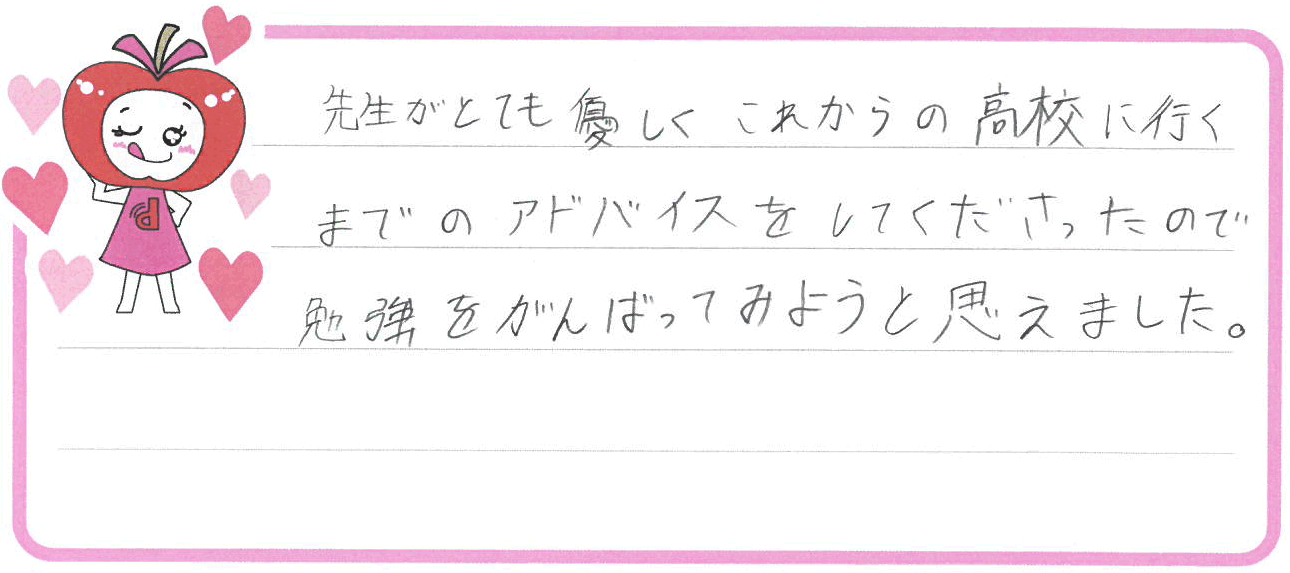 先生がとても優しくこれからの高校に行く
までのアドバイスをしてくださったので
勉強をがんばってみようと思えました。